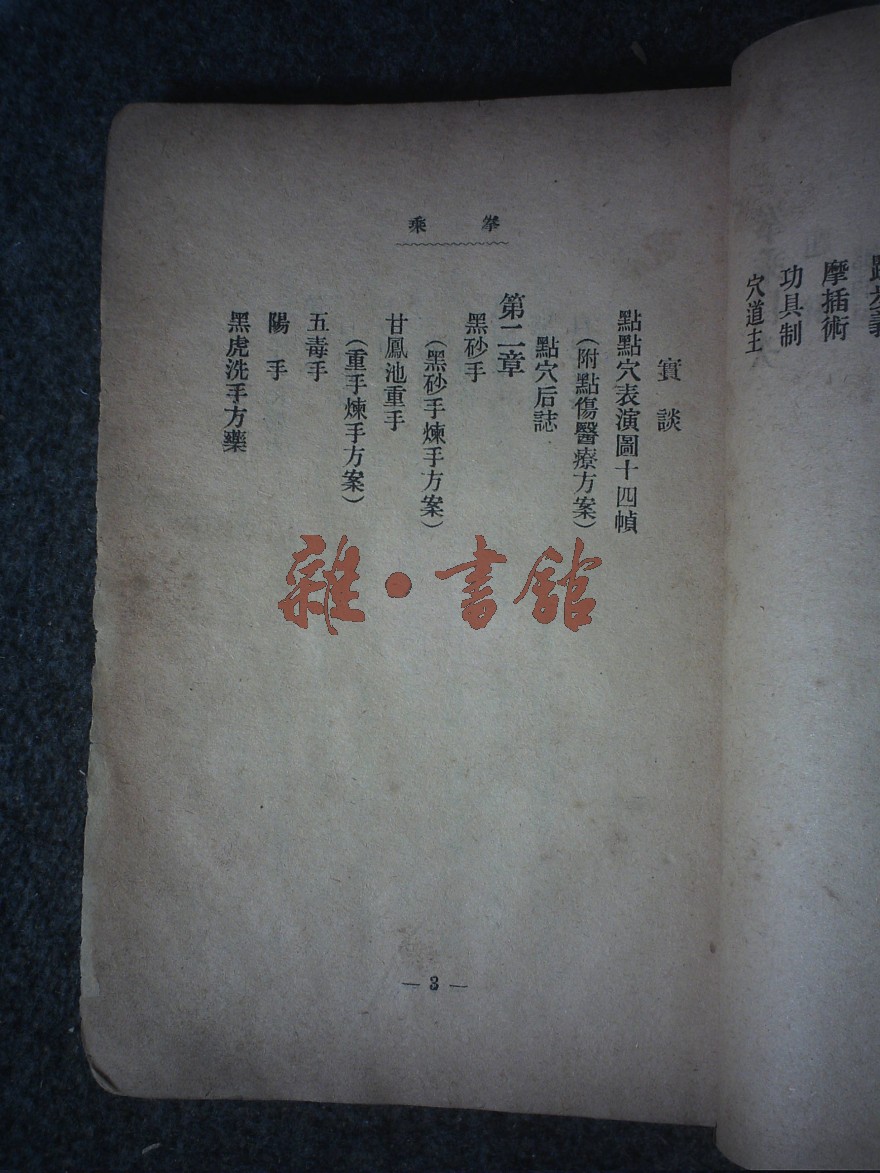 拳乘
實談
點點穴表演圖十四幀
（附點傷醫療方案）
點穴后誌
第二章
黑砂手
（黑砂手煉手方案）
甘鳳池重手
（重手煉手方案）
五毒手
陽手
黑虎洗手方藥
— 3 —
摩插術
功具制
穴道主
雜・書館